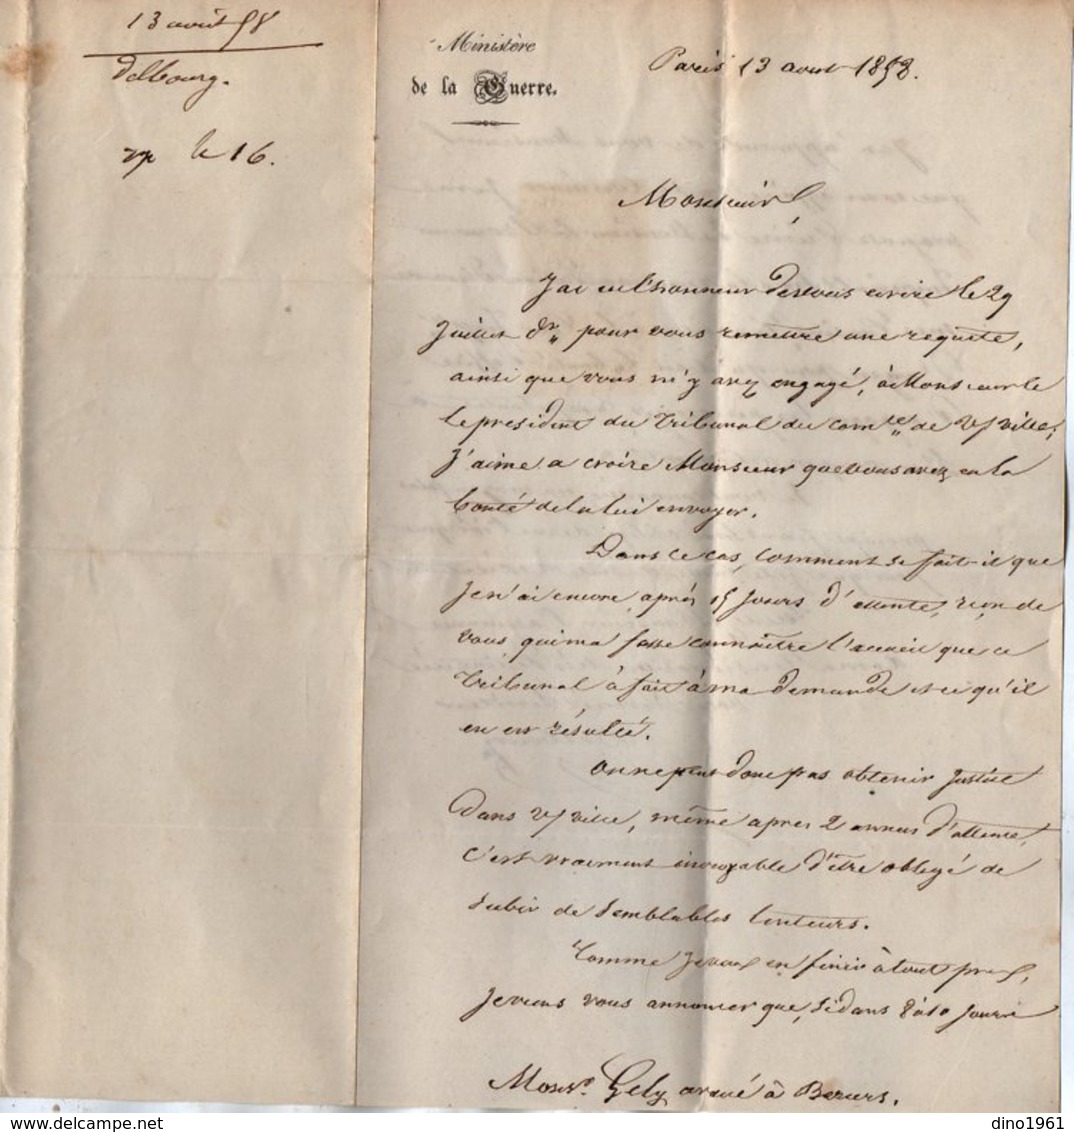 13 août 58
Delbourg.
rp le 16.
Ministère
de la Guerre.
Paris 13 aout 1858.
Monsieur,
J'ai eu l'honneur de vous ecrire le 29
Juillet dr, pour vous remettre une requête,
ainsi que vous m'y avez engagé, à Monsieur le
le president du Tribunal du comce de v/ ville,
J'aime a croire Monsieur que vous avez eu la
bonté de la lui envoyer.
Dans ce cas, comment se fait-il que
Je n'ai encore, après 15 Jours d'attente, rien de
vous qui me fasse connaître l'accueil que ce
Tribunal à fait à ma demande et ce qu'il
en est résulté.
On ne peut donc pas obtenir Justice
dans v/ ville, même apres 2 annees d'attente,
c'est vraiment incroyable d'être obligé de
subir de semblables lenteurs.
Comme Je veux en finir à tout prix,
Je viens vous annoncer que, si dans 8 à 10 Jours
Monsr. Gely avoué à Beziers.
dino1961